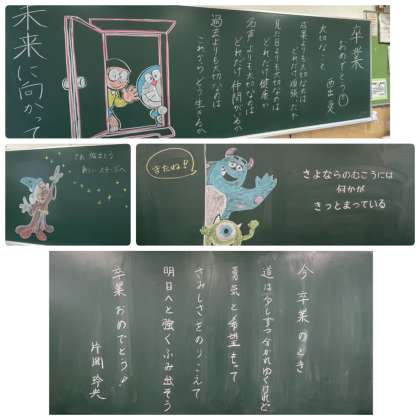 卒業
おめでとう
大切なこと
成果よりも大切なのは
どれだけ頑張ったか
見た目よりも大切なのは
どれだけ健康か
名声よりも大切なのは
どれだけ仲間がいるか
過去よりも大切なのは
これからどう生きるか
未来に向かって
さあ 旅立とう
新しいステージへ
きたね!!
さよならのむこうには
何かが
きっとまっている
今 卒業のとき
道は少しずつ分かれゆくけれど
勇気と希望もって
さみしさをのりこえて
明日へと強くふみ出そう
卒業おめでとう!
片岡 玲央